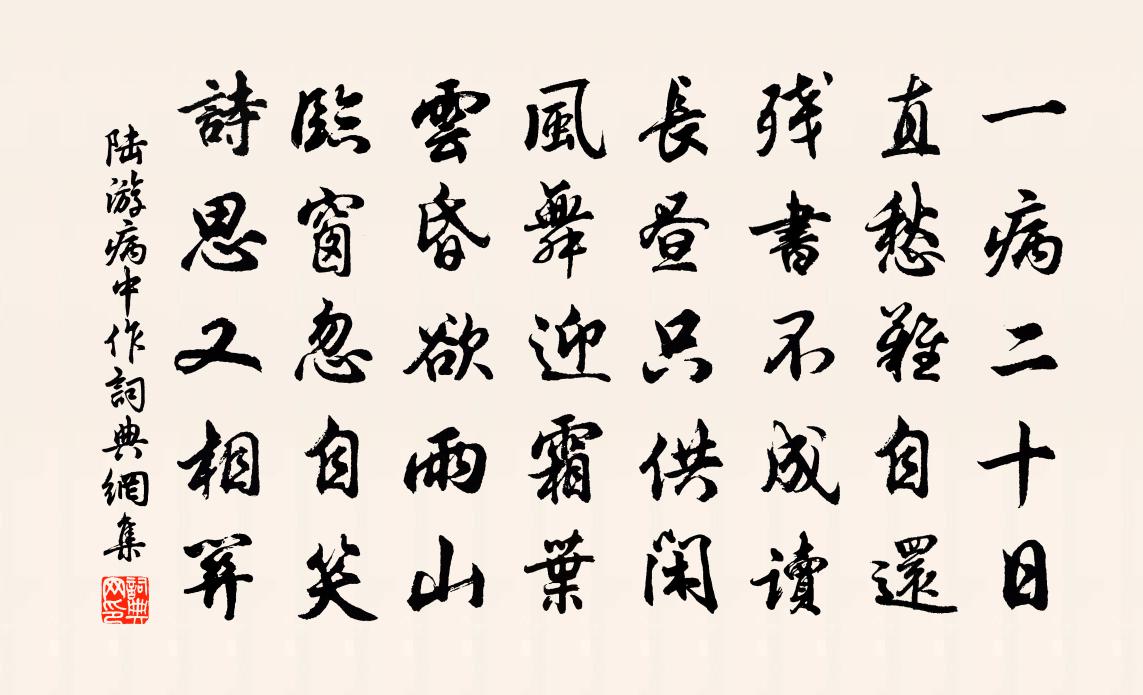 一病二十日
直愁難自還
残書不成讀
長晝只供閑
風舞迎霜葉
雲昏欲雨山
臨窗忽自笑
詩思又相關
陆游病中作詞典網集
詞典网印